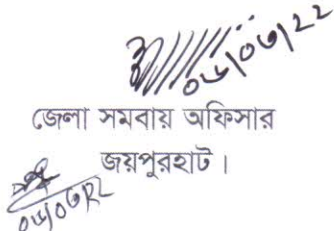 ০৬/০৩/২২
জেলা সমবায় অফিসার
জয়পুরহাট।
০৬/০৩/২২